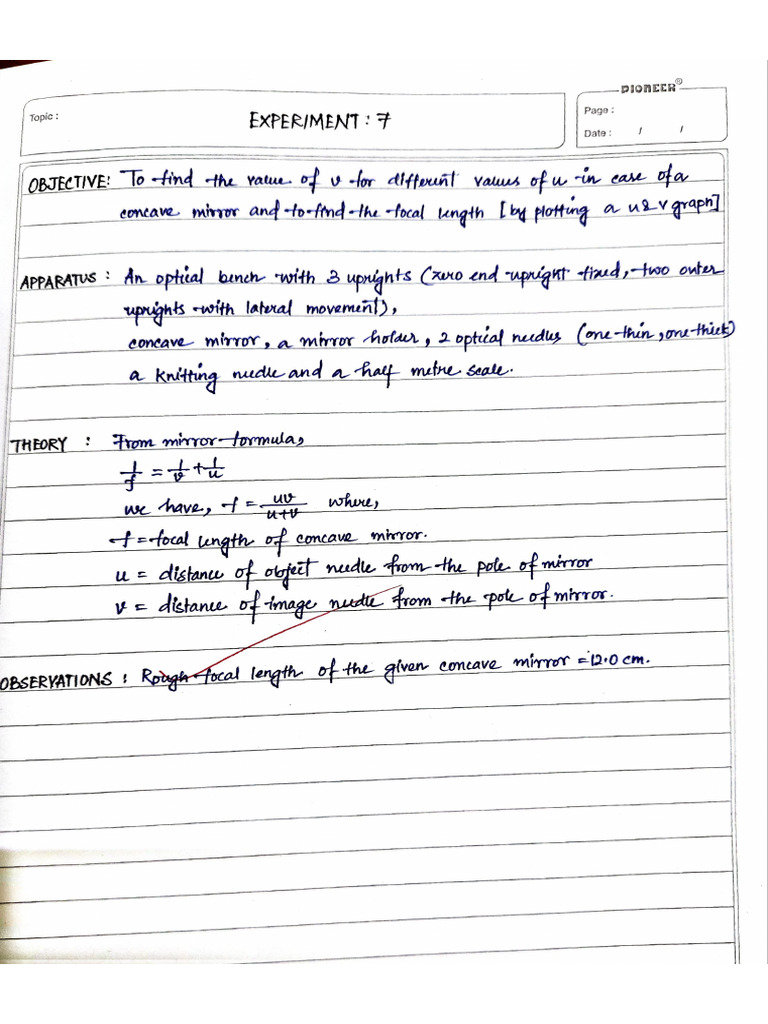 PIONEER®
Topic :
EXPERIMENT : 7
Page :
Date : / /
OBJECTIVE: To find the value of v for different values of u in case of a
concave mirror and to find the focal length [by plotting a u & v graph]
APPARATUS : An optical bench with 3 uprights (zero end upright fixed, two outer
uprights with lateral movement),
concave mirror, a mirror holder, 2 optical needles (one thin, one thick)
a knitting needle and a half metre scale.
THEORY : From mirror formula,
1/f = 1/v + 1/u
we have, f = uv/u+v where,
f = focal length of concave mirror.
u = distance of object needle from the pole of mirror
v = distance of image needle from the pole of mirror.
OBSERVATIONS : Rough focal length of the given concave mirror = 12.0 cm.